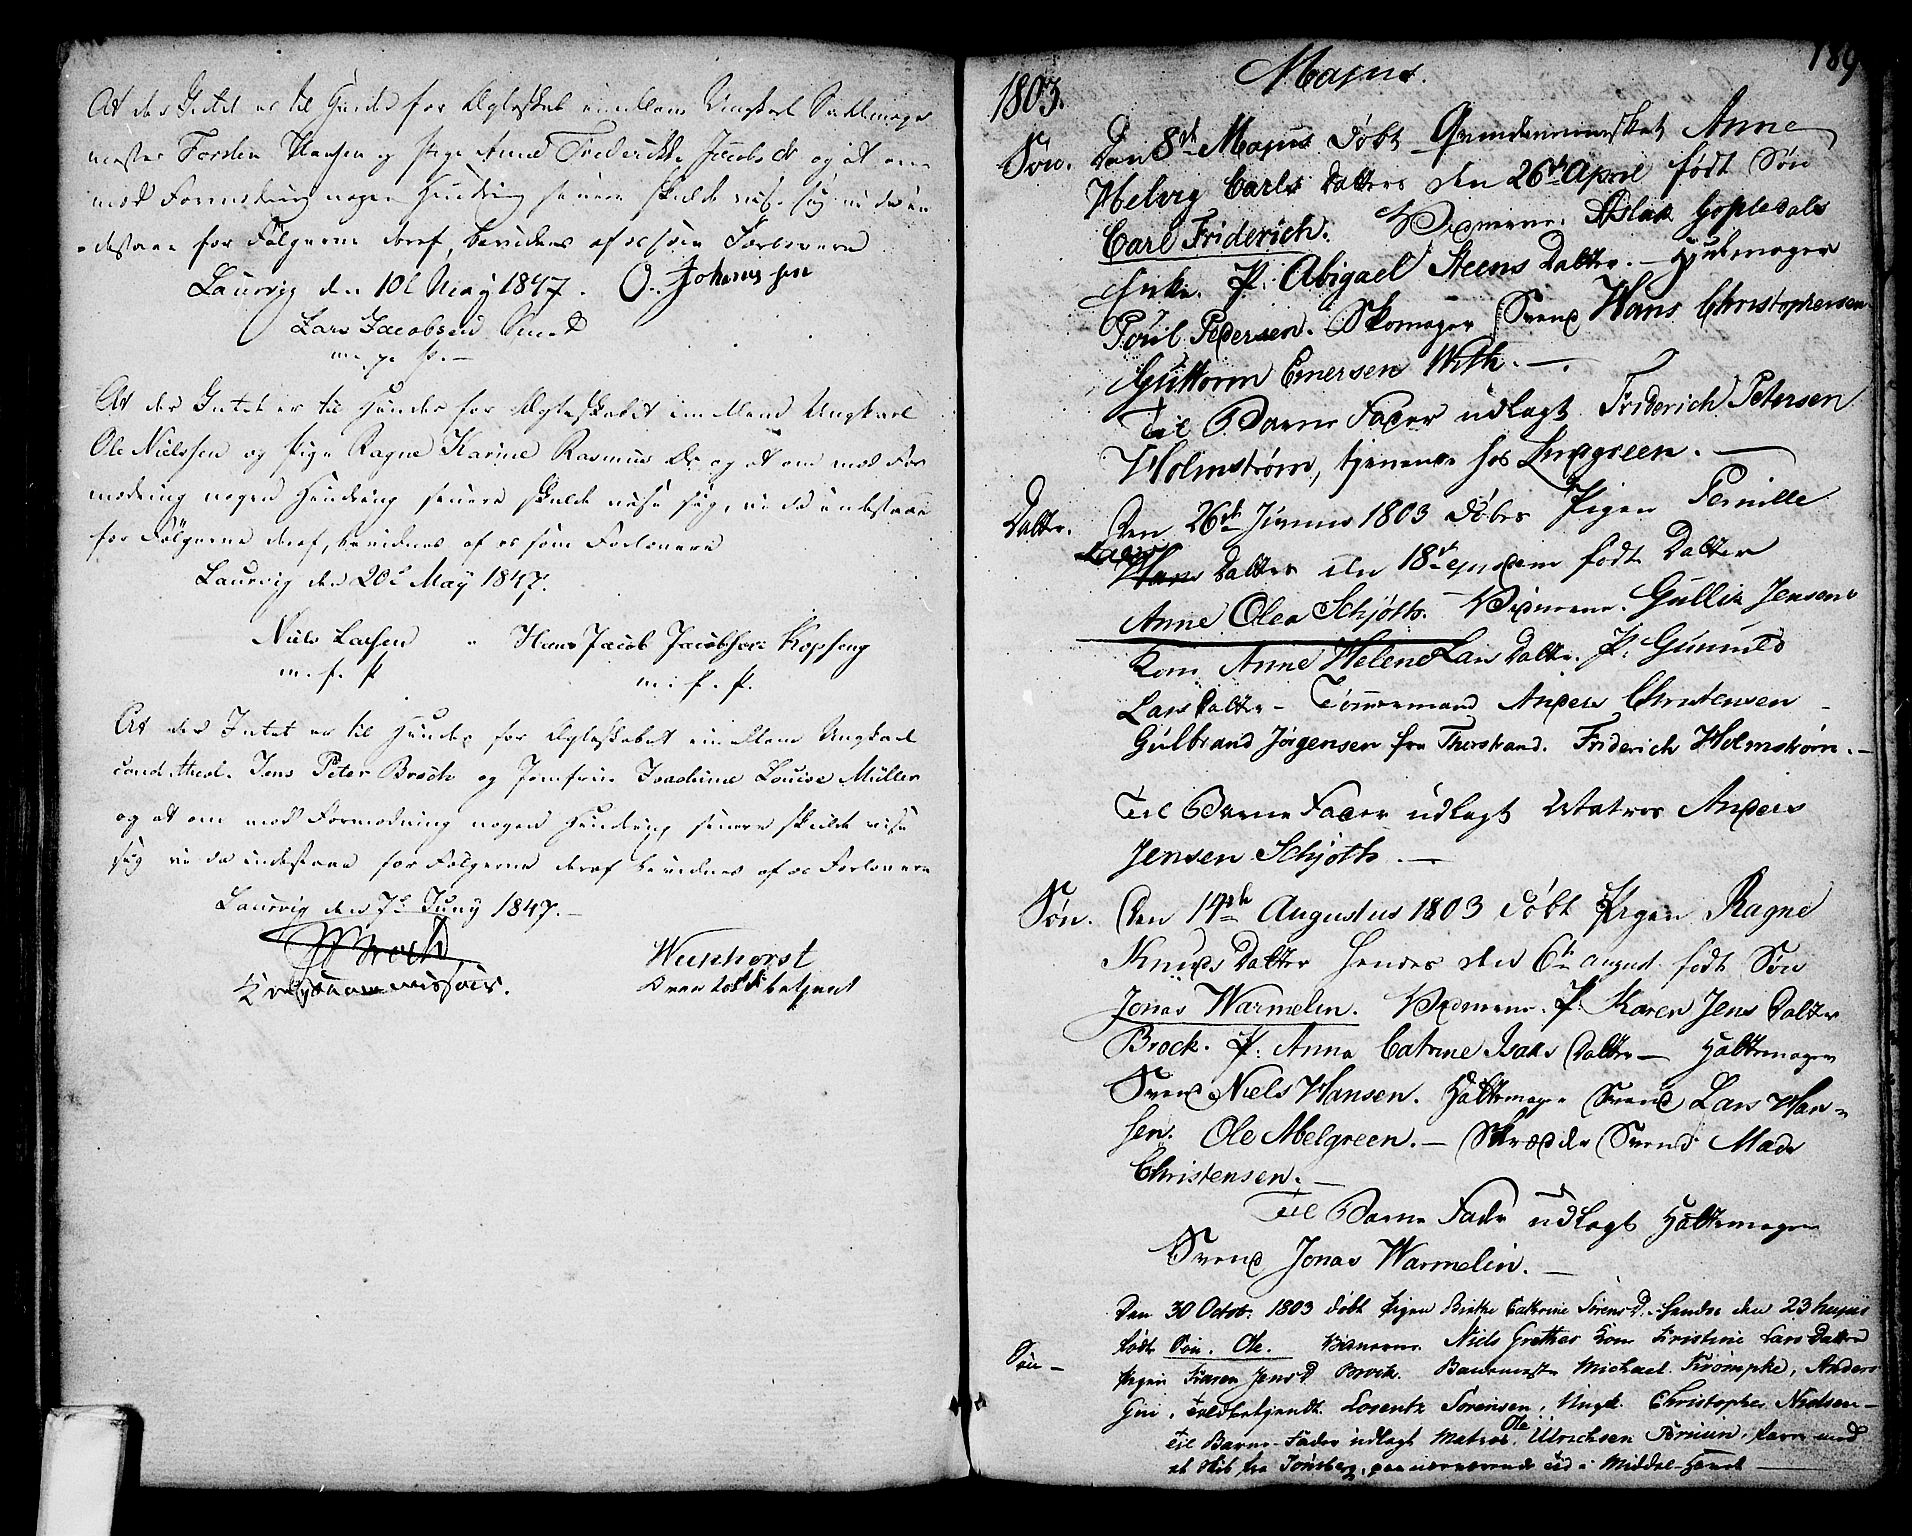 At der Intet er til Hinder for Ægteskab imellem Ungkarl Sadelmager
mester Torsten Hansen og Pige Anne Frederikke Jacobs Dr og at om
mod Formodning nogen Hindring senere skulde vise sig, vi da in
destaae for Følgerne deraf, bevidnes af os som Forlovere
Laurvig den 10de May 1847. O. Johannssen
Lars Jacobsen
m. p. P.
At der Intet er til Hinder for Ægteskabet imellem Ungkarl
Ole Nielssen og Pige Ragne Karine Rasmus Dr og at om mod For
modning nogen Hindring senere skulde vise sig, vi da indestaae
for Følgerne deraf, bevidnes af os som Forlovere
Laurvig den 20de May 1847.
Niels Larsen Hans Jacob Jacobsen Kopseng
m. f. P. m. f. P.
At der Intet er til Hinder for Ægteskabet imellem Ungkarl
cand. theol. Jens Peter Broch og Jomfrue Joachime Louise Müller
og at om mod Formodning nogen Hindring senere skulde vise
sig vi da indestaae for Følgerne deraf bevidnes af os Forlovere
Laurvig den 7de Juny 1847.
Broch Wunhorst
Overtoldbetjent
189
1803. Majus.
Søn. Den 8de Majus døbt Qvindemennesket Anne
Helvig Carls Datters den 26de April født Søn
Carl Friderich. Vidnerne. Aslak Gopledals
Enke. P. Abigael Steens Datter. Hjulmager
Poul Pedersen. Skomager Svend Hans Christophersen
Guttorm Enersen With.
Til Barne Fader udlagt Friderich Petersen
Holmstrøm, tjenende hos Lindgreen.
Datter. Den 26de Junius 1803 døbt Pigen Pernille
Lars
Hans Datter den 18de ejusdem født Datter
Anne Olea Schjøth. Vidnerne. Gullik Jensens
Kone Anne Helene Lars Datter. P. Gunnild
Lars Datter - Tømmermand Anders Christensen
Gulbrand Jørgensen fra Thorstrand. Friderich Holmstrøm.
Til Barne Fader udlagt Matros Anders
Jensen Schjøth.
Søn. Den 14de Augustus 1803 døbt Pigen Ragne
Knuds Datter hendes den 6te August født Søn
Jonas Warmelin. Vidnerne. P. Karen Jens Datter
Brock. P. Anna Catrine Isaks Datter - Hattemager
Svend Niels Hansen. Hattemager Svend Lars Han-
sen. Ole Melgreen. - Skrædder Svend Mads
Christensen.
Til Barne Fader udlagt Hattemager
Svend Jonas Warmelin.
Den 30 Octob. 1803 døbt Pigen Birthe Cathrine Sørens D. hendes den 23 hujus
Søn - født Søn. Ole. Vidnerne. Niels Grethes Kone Kristine Lars Datter
Pigen Karen Jens D. Brock. Michael Krømpke, Anders
Gui, Toldbetjendt Lorentz Sørensen, Ungk. Christopher Nielsen -
Ole
Til Barne-Fader udlagt Matros Ulrichsen farer med
et Skib fra Tønsberg, paa nærværende Tid i Middel-Havet